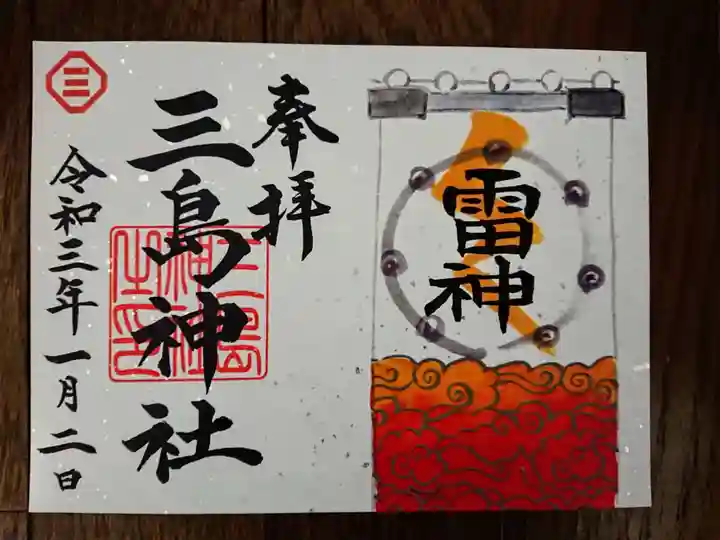 奉拝
三島神社
三
三島神社之印
令和三年一月二日
雷神